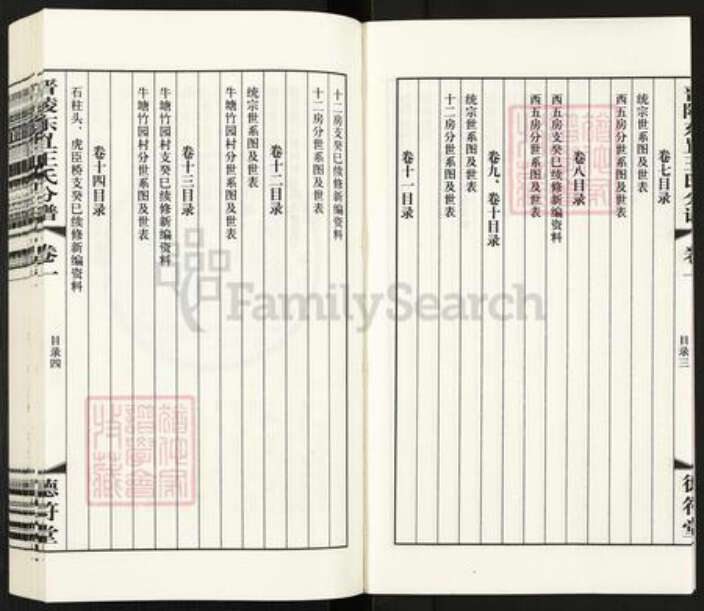 卷七目录
统宗世系图及世表
西五房分世系图及世表
卷八目录
西五房支癸巳续修新编资料
西五房分世系图及世表
卷九、卷十目录
统宗世系图及世表
十二房分世系图及世表
卷十一目录
目录三
德符堂
十二房支癸巳续修新编资料
十二房分世系图及世表
卷十二目录
统宗世系图及世表
牛塘竹园村分世系图及世表
卷十三目录
牛塘竹园村支癸巳续修新编资料
牛塘竹园村分世系图及世表
卷十四目录
石柱头、虎臣桥支癸巳续修新编资料
晋陵东直王氏分谱
卷一
目录四
德符堂
FamilySearch